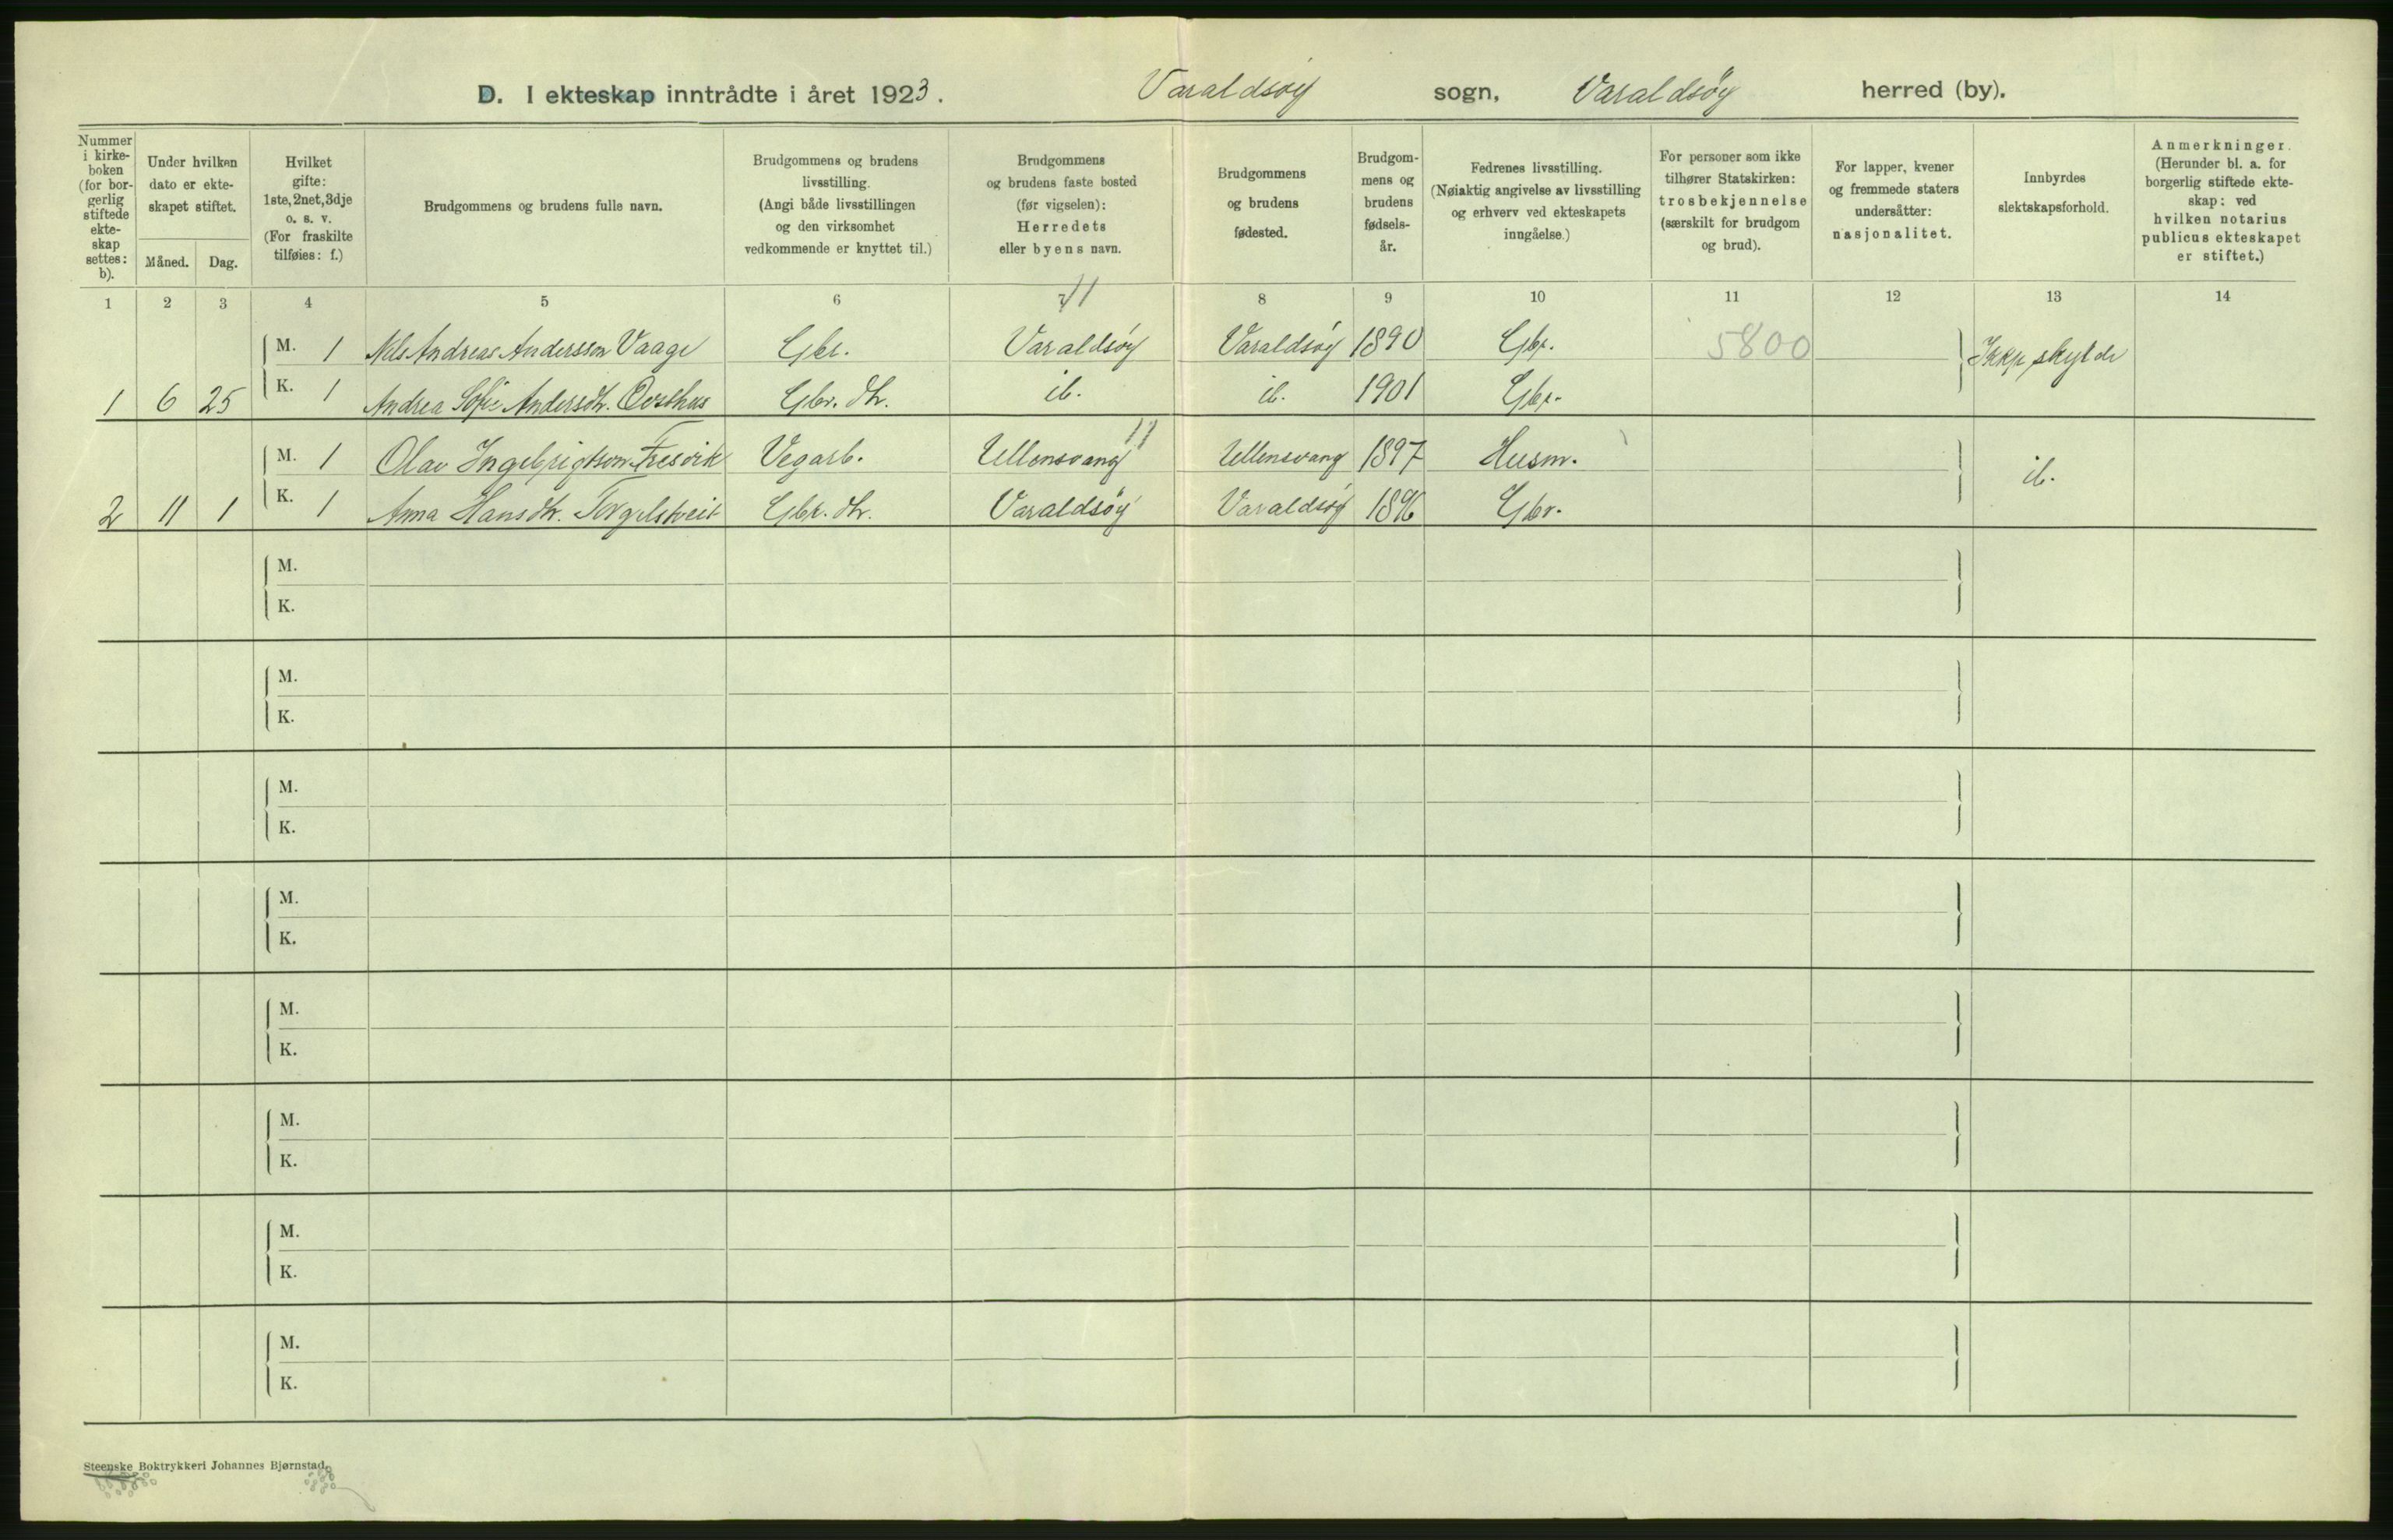 D. I ekteskap inntrådte i året 1923. Varaldsøy sogn, Varaldsøy herred (by).
Nummer i kirke-boken (for bor-gerlig stiftede ekte-skap settes: b).
Under hvilken dato er ekte-skapet stiftet.
Måned. Dag.
Hvilket gifte: 1ste, 2net, 3dje o. s. v. (For fraskilte tilføies: f.)
Brudgommens og brudens fulle navn.
Brudgommens og brudens livsstilling. (Angi både livsstillingen og den virksomhet vedkommende er knyttet til.)
Brudgommens og brudens faste bosted (før vigselen): Herredets eller byens navn.
Brudgommens og brudens fødested.
Brudgom-mens og brudens fødsels-år.
Fedrenes livsstilling. (Nøiaktig angivelse av livsstilling og erhverv ved ekteskapets inngåelse.)
For personer som ikke tilhører Statskirken: trosbekjennelse (særskilt for brudgom og brud).
For lapper, kvener og fremmede staters undersåtter: nasjonalitet.
Innbyrdes slektskapsforhold.
Anmerkninger. (Herunder bl. a. for borgerlig stiftede ekte-skap: ved hvilken notarius publicus ekteskapet er stiftet.)
1 2 3 4 5 6 7 11 8 9 10 11 12 13 14
M. 1 Nils Andreas Andersson Vaage Gbr. Varaldsøy Varaldsøy 1890 Gbr. 5800 Ikkje skylde
1 6 25 K. 1 Andrea Sofie Andersdtr. Oersthus Gbr. dtr. ib. ib. 1901 Gbr.
M. 1 Olav Ingebrigtson Fresvik Vegarb. Ullensvang 11 Ullensvang 1897 Husm. ib.
2 11 1 K. 1 Anna Hansdtr. Torgelstveit Gbr. dtr. Varaldsøy Varaldsøy 1896 Gbr.
M.
K.
M.
K.
M.
K.
M.
K.
M.
K.
M.
K.
M.
K.
M.
K.
Steenske Boktrykkeri Johannes Bjørnstad.